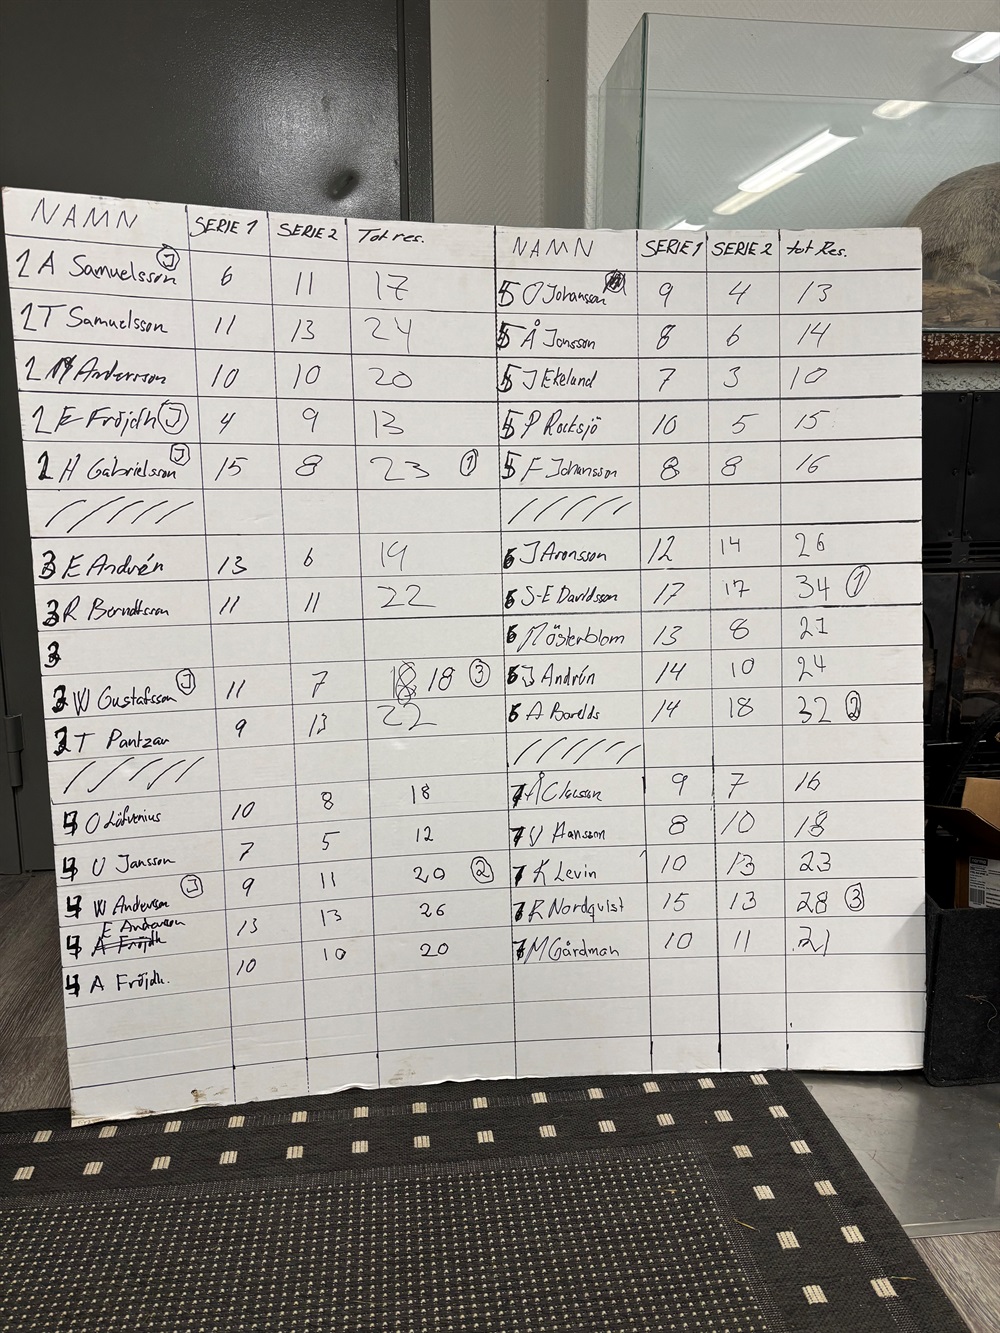 NAMN SERIE 1 SERIE 2 Tot res.
1 A Samuelsson J 6 11 17
1 T Samuelsson 11 13 24
1 M Andersson 10 10 20
1 E Fröjdh J 4 9 13
1 H Gabrielsson J 15 8 23 1
3 E Andrén 13 6 19
3 R Berndtsson 11 11 22
3
3 W Gustafsson J 11 7 18 18 3
3 T Pantzar 9 13 22
4 O Löfvenius 10 8 18
4 U Jansson 7 5 12
4 W Anderson J 9 11 20 2
E Anderson
4 A Fröjdh 13 13 26
4 A Fröjdh. 10 10 20
NAMN SERIE 1 SERIE 2 tot Res.
5 O Johansson 9 4 13
5 Å Jonsson 8 6 14
5 J Ekelund 7 3 10
5 P Rocksjö 10 5 15
5 F Johansson 8 8 16
6 J Aronsson 12 14 26
6 S-E Davidsson 17 17 34 1
6 M Österblom 13 8 21
6 J Andrén 14 10 24
6 A Barelds 14 18 32 2
7 Å Claesson 9 7 16
7 U Hansson 8 10 18
7 K Levin 10 13 23
7 R Nordqvist 15 13 28 3
7 M Gårdman 10 11 21